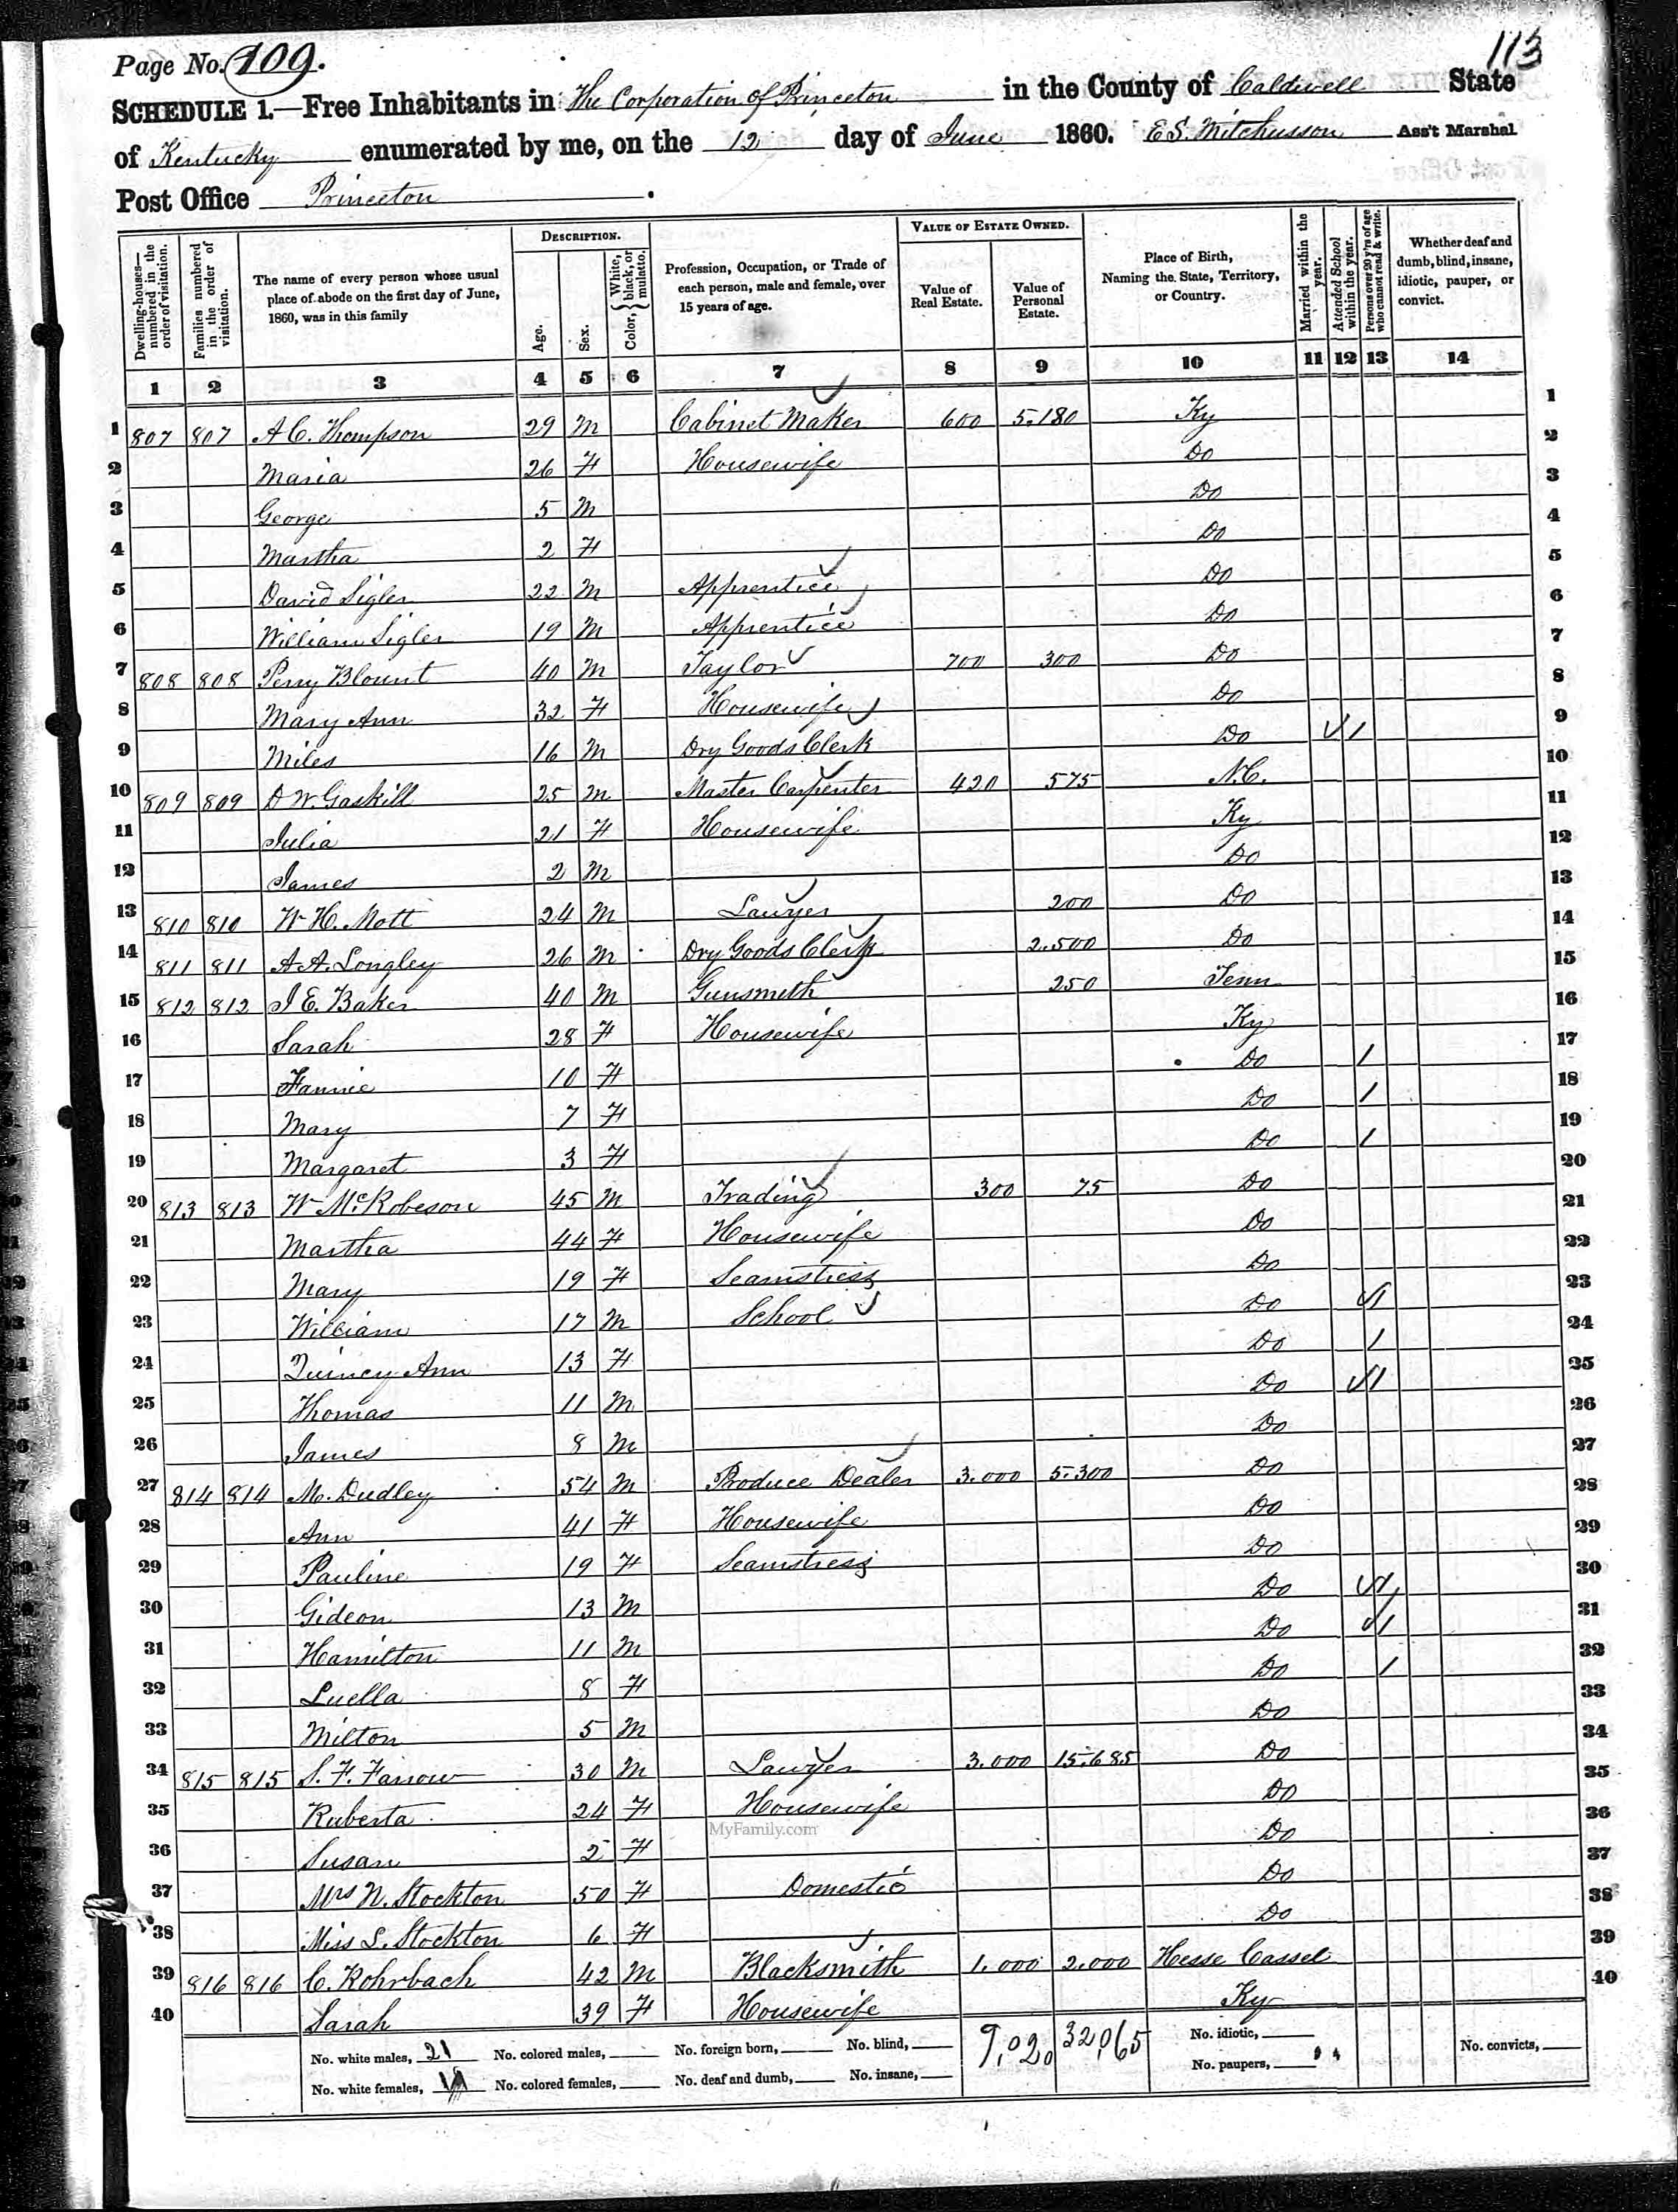 Page No. 109.
113
SCHEDULE 1.—Free Inhabitants in The Corporation of Princeton in the County of Caldwell State
of Kentucky enumerated by me, on the 12 day of June 1860. E S. Mitchusson Ass't Marshal
Post Office Princeton.
Dwelling-houses—numbered in the order of visitation.
Families numbered in the order of visitation.
The name of every person whose usual place of abode on the first day of June, 1860, was in this family
DESCRIPTION.
Age.
Sex.
Color, { White, black, or mulatto.
Profession, Occupation, or Trade of each person, male and female, over 15 years of age.
VALUE OF ESTATE OWNED.
Value of Real Estate.
Value of Personal Estate.
Place of Birth, Naming the State, Territory, or Country.
Married within the year.
Attended School within the year.
Persons over 20 y'rs of age who cannot read & write.
Whether deaf and dumb, blind, insane, idiotic, pauper, or convict.
1 2 3 4 5 6 7 8 9 10 11 12 13 14
1 807 807 A C. Thompson 29 M Cabinet Maker 600 5.180 Ky 1
2 Maria 26 F Housewife Do 2
3 George 5 M Do 3
4 Martha 2 F Do 4
5 David Sigler 22 M Apprentice Do 5
6 William Sigler 19 M Apprentice Do 6
7 808 808 Perry Blount 40 M Taylor 700 300 Do 7
8 Mary Ann 32 F Housewife Do 8
9 Miles 16 M Dry Goods Clerk Do 1 9
10 809 809 D W. Gaskill 25 M Master Carpenter 420 575 N.C. 10
11 Julia 21 F Housewife Ky 11
12 James 2 M Do 12
13 810 810 W H. Mott 24 M Lawyer 200 Do 13
14 811 811 A A. Longley 26 M Dry Goods Clerk 2.500 Do 14
15 812 812 J E. Baker 40 M Gunsmith 250 Tenn 15
16 Sarah 28 F Housewife Ky 16
17 Fannie 10 F Do 1 17
18 Mary 7 F Do 1 18
19 Margaret 3 F Do 1 19
20 813 813 W McRobeson 45 M Trading 300 75 Do 20
21 Martha 44 F Housewife Do 21
22 Mary 19 F Seamstress Do 22
23 William 17 M School Do 1 23
24 Quincy Ann 13 F Do 1 24
25 Thomas 11 M Do 1 25
26 James 8 M Do 26
27 814 814 M. Dudley 54 M Produce Dealer 3.000 5.300 Do 27
28 Ann 41 F Housewife Do 28
29 Pauline 19 F Seamstress Do 29
30 Gideon 13 M Do 1 30
31 Hamilton 11 M Do 1 31
32 Luella 8 F Do 1 32
33 Milton 5 M Do 33
34 815 815 S. F. Farrow 30 M Lawyer 3.000 15.685 Do 34
35 Ruberta 24 F Housewife Do 35
MyFamily.com
36 Susan 2 F Do 36
37 Mrs N. Stockton 50 F Domestic Do 37
38 Miss L. Stockton 6 F Do 38
39 816 816 C. Rohrbach 42 M Blacksmith 1.000 2.000 Hesse Cassel 39
40 Sarah 39 F Housewife Ky 40
No. white males, 21 No. colored males, No. foreign born, No. blind, 9,020 32,065 No. idiotic, No. convicts,
No. white females, No. colored females, No. deaf and dumb, No. insane, No. paupers,